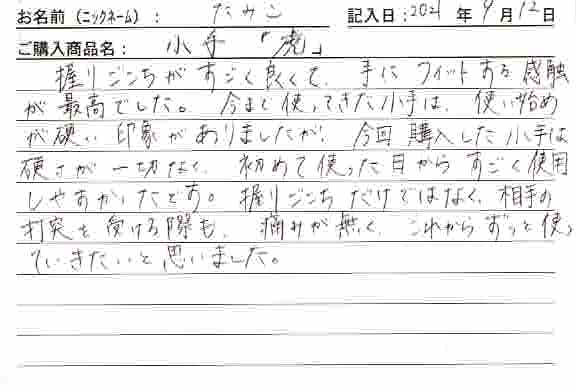 お名前（ニックネーム）： たみこ 記入日：2021年9月12日
ご購入商品名： 小手 「虎」
握りごこちがすごく良くて、手にフィットする感触
が最高でした。今まで使ってきた小手は、使い始め
が硬い印象がありましたが、今回購入した小手は
硬さが一切なく、初めて使った日からすごく使用
しやすかったです。握りごこちだけではなく、相手の
打突を受ける際も、痛みが無く、これからずっと使っ
ていきたいと思いました。